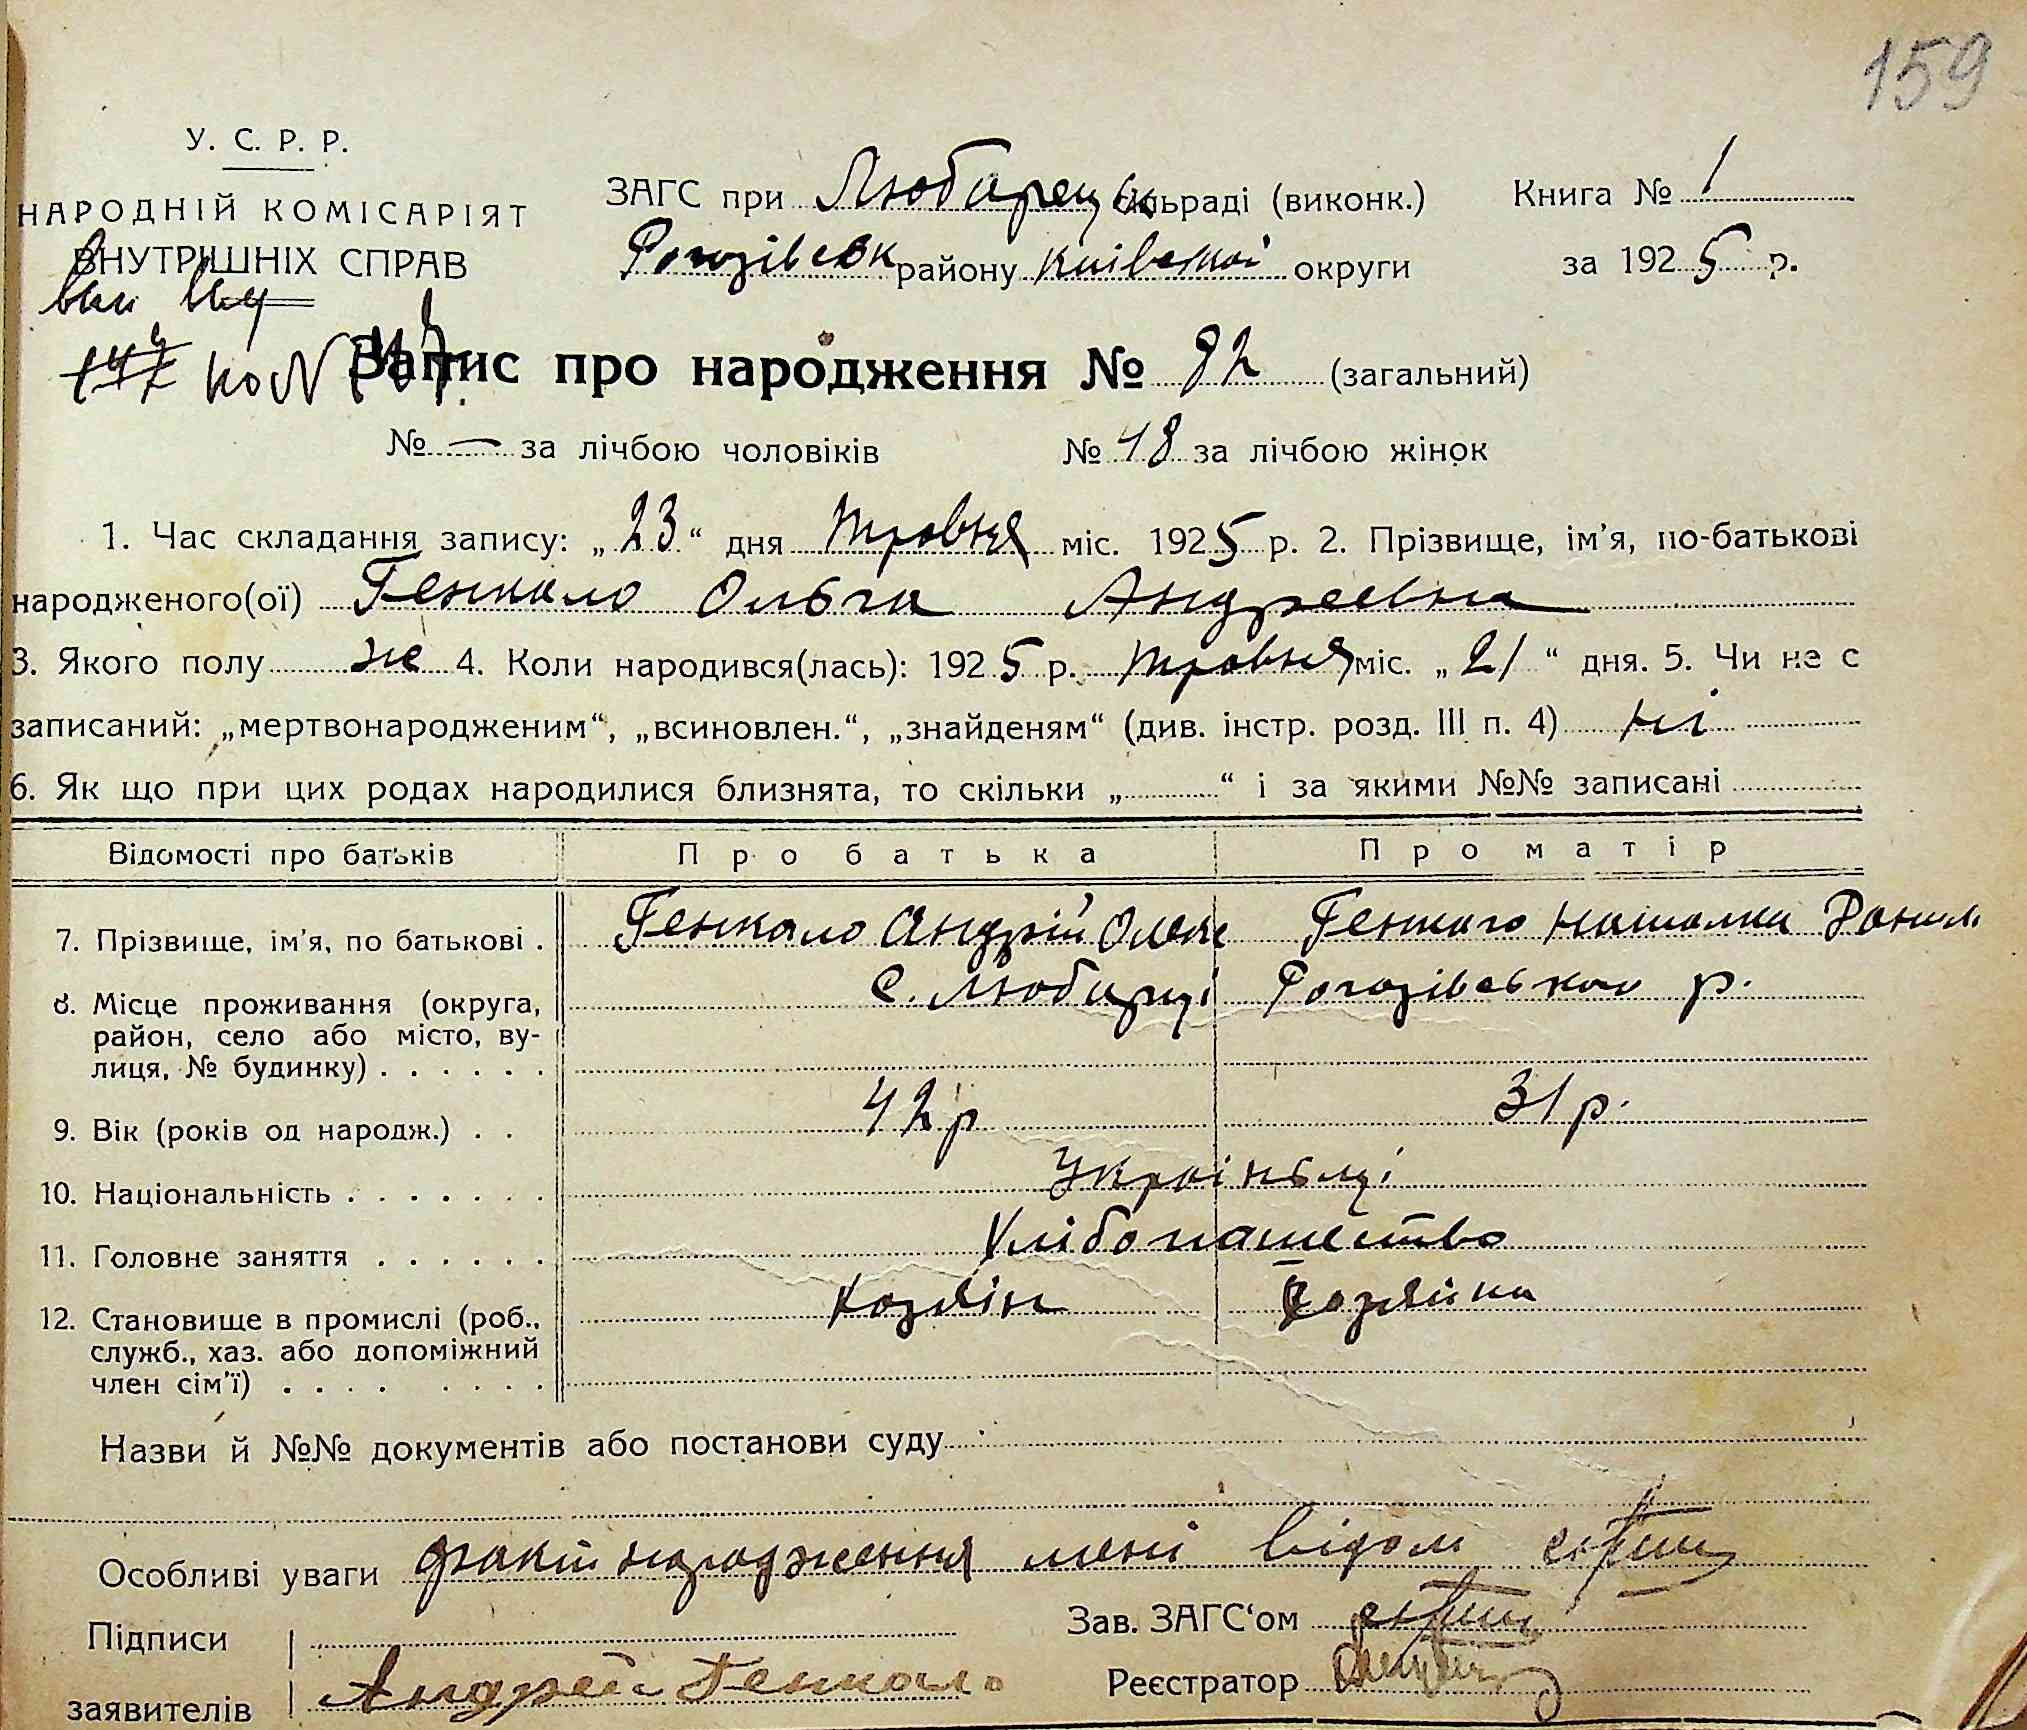 159
У. С. Р. Р.
НАРОДНІЙ КОМІСАРІЯТ
ВНУТРІШНІХ СПРАВ
ЗАГС при Любарецьк сільраді (виконк.)
Рогозівськ району Київської округи
Книга № 1
за 1925 р.
Запис про народження № 92 (загальний)
№ — за лічбою чоловіків № 48 за лічбою жінок
1. Час складання запису: „23“ дня травня міс. 1925 р. 2. Прізвище, ім'я, по-батькові
народженого(ої) Генкало Ольга Андреевна
3. Якого полу же 4. Коли народився(лась): 1925 р. травня міс. „21“ дня. 5. Чи не є
записаний: „мертвонародженим“, „всиновлен.“, „знайденям“ (див. інстр. розд. III п. 4) ні
6. Як що при цих родах народилися близнята, то скільки „ “ і за якими №№ записані
Відомості про батьків Про батька Про матір
7. Прізвище, ім'я, по батькові . Генкало Андрій Олекс Генкало Наталка Данил
8. Місце проживання (округа, с. Любарці Рогозівського р.
район, село або місто, ву-
лиця, № будинку) . . . . . .
9. Вік (років од народж.) . . 42 р 31 р.
10. Національність . . . . . . . Україньці
11. Головне заняття . . . . . . Хлібопашество
12. Становище в промислі (роб., Хозяїн Хозяйка
служб., хаз. або допоміжний
член сім'ї) . . . . . . . .
Назви й №№ документів або постанови суду
Особливі уваги факт народження мені відом
Підписи
заявителів Андрей Генкало
Зав. ЗАГС'ом
Реєстратор